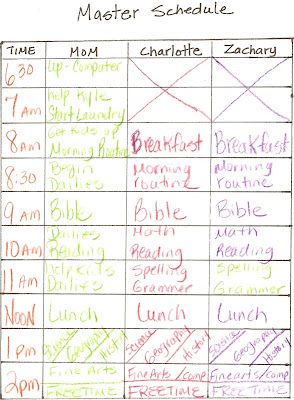 Master Schedule
TIME MOM Charlotte Zachary
6:30 up-Computer
7am help Kyle
Start Laundry
8am Get Kids up Breakfast Breakfast
Morning Routine
8:30 Begin Morning Morning
Dailies routine routine
9am Bible Bible Bible
10am Dailies Math Math
Reading Reading Reading
11am help Kids Spelling Spelling
Dailies Grammer Grammer
NOON Lunch Lunch Lunch
1pm Science Geography History Science Geography History Science Geography History
2pm Fine Arts Fine Arts/Comp Finearts/comp
FREETIME FREETIME FREETIME